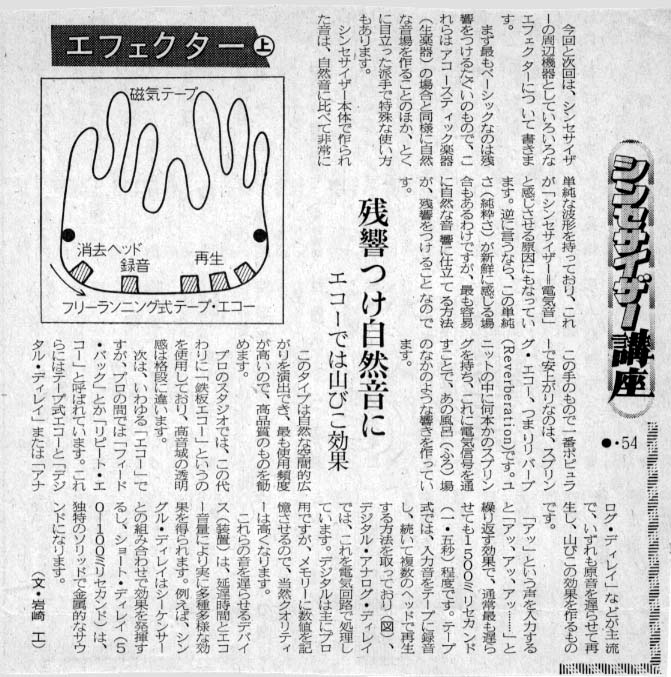 シンセサイザー講座
●・54
エフェクター上
残響つけ自然音に
エコーでは山びこ効果
今回と次回は、シンセサイザ
ーの周辺機器としていろいろな
エフェクターについて書きま
す。
まず最もベーシックなのは残
響をつけるたぐいのもので、こ
れらはアコースティック楽器
(生楽器)の場合と同様に自然
な音場を作ることのほか、とく
に目立った派手で特殊な使い方
もあります。
シンセサイザー本体で作られ
た音は、自然音に比べて非常に
単純な波形を持っており、これ
が「シンセサイザー=電気音」
と感じさせる原因にもなってい
ます。逆に言うなら、この単純
さ(純粋さ)が新鮮に感じる場
合もあるわけですが、最も容易
に自然な音響に仕立てる方法
が、残響をつけることなので
す。
この手のもので一番ポピュラ
ーで安上がりなのは、スプリン
グ・エコー、つまりリバーブ
(Reverberation)です。ユ
ニットの中に何本かのスプリン
グを持ち、これに電気信号を通
すことで、あの風呂(ふろ)場
のなかのような響きを作ってい
ます。
このタイプは自然な空間的広
がりを演出でき、最も使用頻度
が高いので、高品質のものを勧
めます。
プロのスタジオでは、この代
わりに「鉄板エコー」というの
を使用しており、高音域の透明
感は格段に違います。
次は、いわゆる「エコー」で
すが、プロの間では「フィード
・バック」とか「リピート・エ
コー」と呼ばれています。これ
らにはテープ式エコーと「デジ
タル・ディレイ」または「アナ
ログ・ディレイ」などが主流
で、いずれも原音を遅らせて再
生し、山びこの効果を作るもの
です。
「アッ」という声を入力する
と「アッ、アッ、アッ……」と
繰り返す効果で、通常最も遅ら
せても1500ミリセカンド
(一・五秒)程度です。テープ
式では、入力音をテープに録音
し、続いて複数のヘッドで再生
する方法を取っており(図)、
デジタル・アナログ・ディレイ
では、これを電気回路で処理し
ています。デジタルは主にプロ
用ですが、メモリーに数値を記
憶させるので、当然クオリティ
ーは高くなります。
これらの音を遅らせるデバイ
ス(装置)は、遅延時間とエコ
ー音量により実に多種多様な効
果を得られます。例えば、シン
グル・ディレイはシーケンサー
との組み合わせで効果を発揮す
るし、ショート・ディレイ(5
0-100ミリセカンド)は、
独特のソリッドで金属的なサウ
ンドになります。
(文・岩崎 工)
磁気テープ
消去ヘッド
録音
再生
フリーランニング式テープ・エコー